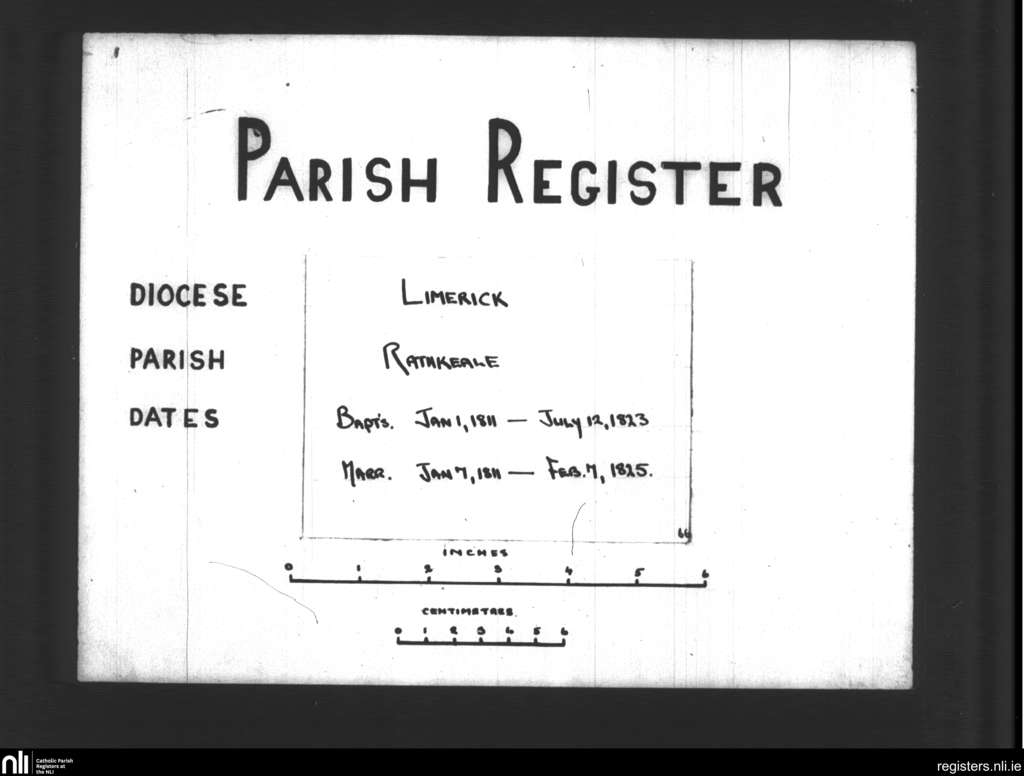 PARISH REGISTER
DIOCESE LIMERICK
PARISH RATHKEALE
DATES BAPT'S. JAN 1, 1811 — JULY 12, 1823
MARR. JAN 7, 1811 — FEB. 7, 1825.
66
INCHES
0 1 2 3 4 5 6
CENTIMETRES.
0 1 2 3 4 5 6
nli Catholic Parish
Registers at
the NLI
registers.nli.ie